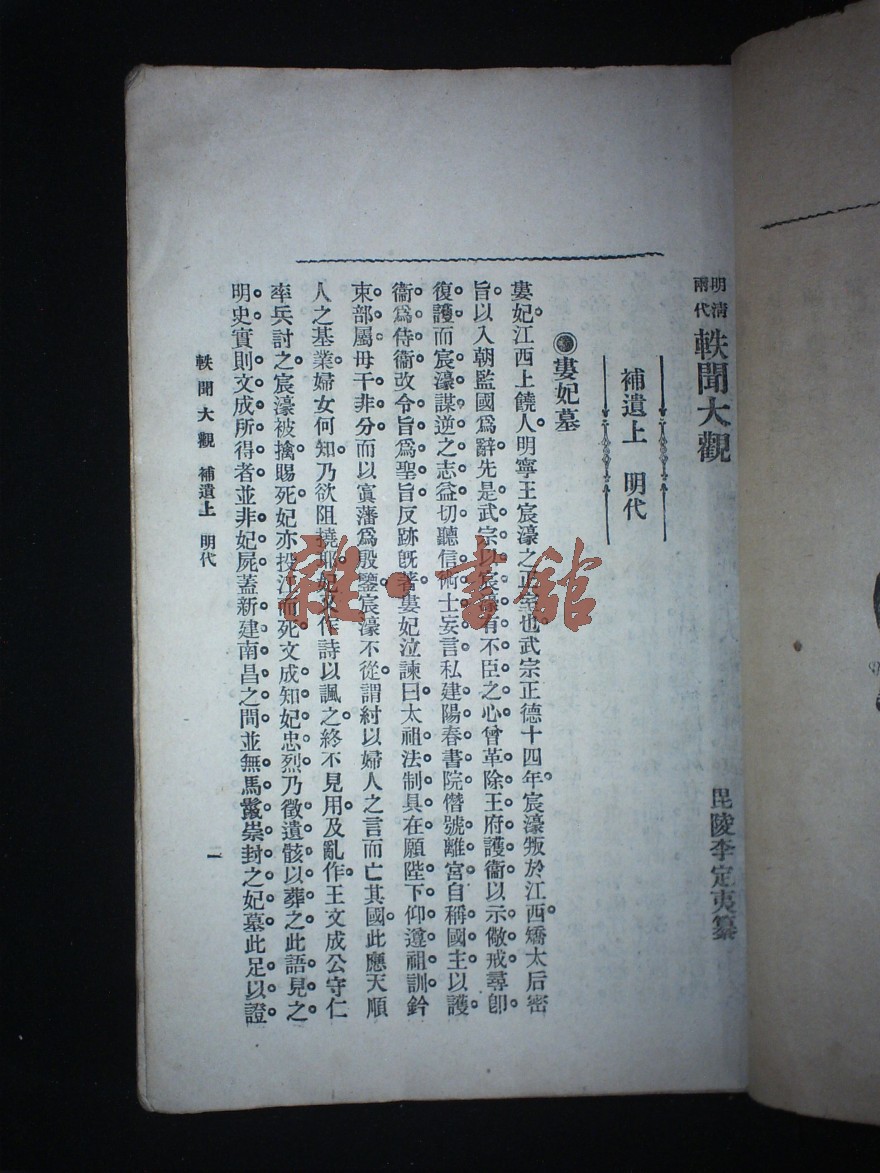 明清兩代 軼聞大觀 毘陵李定夷纂
補遺上 明代
婁妃墓
婁妃江西上饒人。明寧王宸濠之正室也。武宗正德十四年。宸濠叛於江西。矯太后密
旨。以入朝監國爲辭。先是武宗以宸濠有不臣之心。曾革除王府護衞。以示儆戒。尋卽
復護。而宸濠謀逆之志益切。聽信術士妄言。私建陽春書院。僭號離宮。自稱國主。以護
衞爲侍衞。改令旨爲聖旨。反跡旣著。婁妃泣諫曰。太祖法制具在。願陛下仰遵祖訓。鈐
束部屬。毋干非分。而以寘藩爲殷鑒。宸濠不從。謂紂以婦人之言而亡其國。此應天順
人之基業。婦女何知。乃欲阻撓耶。妃又作詩以諷之。終不見用。及亂作。王文成公守仁
率兵討之。宸濠被擒賜死。妃亦投江而死。文成知妃忠烈。乃徵遺骸以葬之。此語見之
明史。實則文成所得者。並非妃屍。蓋新建南昌之間。並無馬鬣崇封之妃墓。此足以證
軼聞大觀 補遺上 明代
一
雜·書館